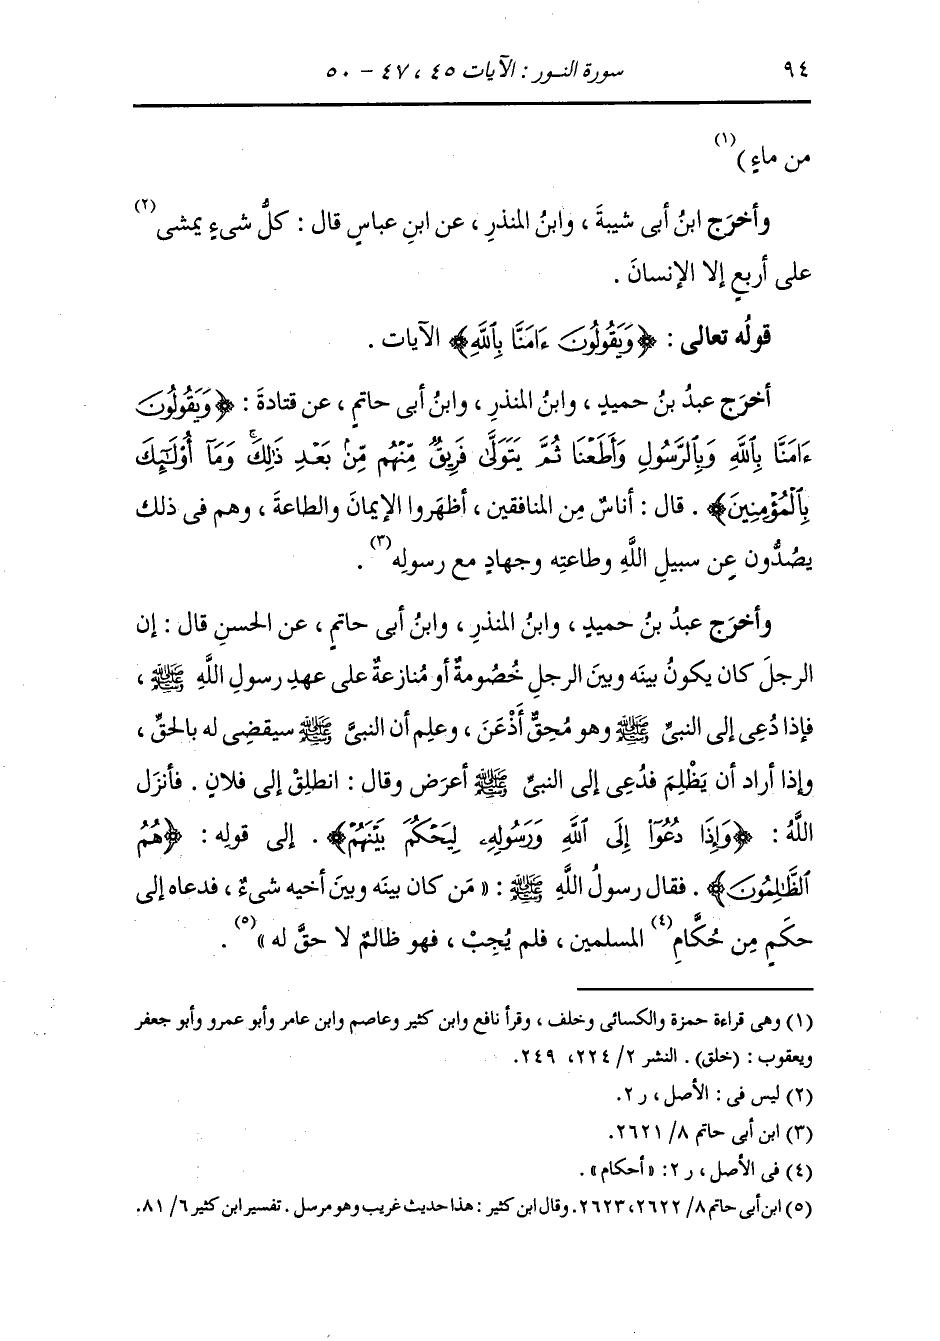 ٩٤ سورة النــور : الآيات ٤٥ ، ٤٧ - ٥٠
من ماءٍ )(١)
وأخرَج ابنُ أبى شيبةَ ، وابنُ المنذرِ ، عن ابنِ عباسٍ قال : كلُّ شىءٍ يمشى(٢)
على أربعٍ إلا الإنسانَ .
قولُه تعالى : ﴿وَيَقُولُونَ ءَامَنَّا بِٱللَّهِ﴾ الآيات .
أخرَج عبدُ بنُ حميدٍ ، وابنُ المنذرِ ، وابنُ أبى حاتمٍ ، عن قتادةَ : ﴿وَيَقُولُونَ
ءَامَنَّا بِٱللَّهِ وَبِٱلرَّسُولِ وَأَطَعْنَا ثُمَّ يَتَوَلَّىٰ فَرِيقٌ مِّنْهُم مِّنۢ بَعْدِ ذَٰلِكَۚ وَمَآ أُوْلَٰٓئِكَ
بِٱلْمُؤْمِنِينَ﴾ . قال : أناسٌ مِن المنافقين ، أظهَروا الإيمانَ والطاعةَ ، وهم فى ذلك
يصُدُّون عن سبيلِ اللَّهِ وطاعتِه وجهادٍ مع رسولِه(٣) .
وأخرَج عبدُ بنُ حميدٍ ، وابنُ المنذرِ ، وابنُ أبى حاتمٍ ، عن الحسنِ قال : إن
الرجلَ كان يكونُ بينَه وبينَ الرجلِ خُصُومةٌ أو مُنازعةٌ على عهدِ رسولِ اللَّهِ ﷺ ،
فإذا دُعِى إلى النبىِّ ﷺ وهو مُحِقٌّ أَذْعَنَ ، وعلِم أن النبىَّ ﷺ سيقضِى له بالحقِّ ،
وإذا أراد أن يَظْلِمَ فدُعِى إلى النبىِّ ﷺ أعرَض وقال : انطلِقْ إلى فلانٍ . فأنزَل
اللَّهُ : ﴿وَإِذَا دُعُوٓاْ إِلَى ٱللَّهِ وَرَسُولِهِۦ لِيَحْكُمَ بَيْنَهُمْ﴾ . إلى قولِه : ﴿هُمُ
ٱلظَّٰلِمُونَ﴾ . فقال رسولُ اللَّهِ ﷺ : « مَن كان بينَه وبينَ أخيه شىءٌ ، فدعاه إلى
حكَمٍ مِن حُكَّامِ(٤) المسلمين ، فلم يُجِبْ ، فهو ظالمٌ لا حقَّ له »(٥) .
(١) وهى قراءة حمزة والكسائى وخلف ، وقرأ نافع وابن كثير وعاصم وابن عامر وأبو عمرو وأبو جعفر
ويعقوب : (خلق) . النشر ٢/ ٢٢٤، ٢٤٩.
(٢) ليس فى : الأصل ، ر ٢.
(٣) ابن أبى حاتم ٨/ ٢٦٢١.
(٤) فى الأصل ، ر ٢: «أحكام» .
(٥) ابن أبى حاتم ٨/ ٢٦٢٢، ٢٦٢٣. وقال ابن كثير : هذا حديث غريب وهو مرسل . تفسير ابن كثير ٦/ ٨١.